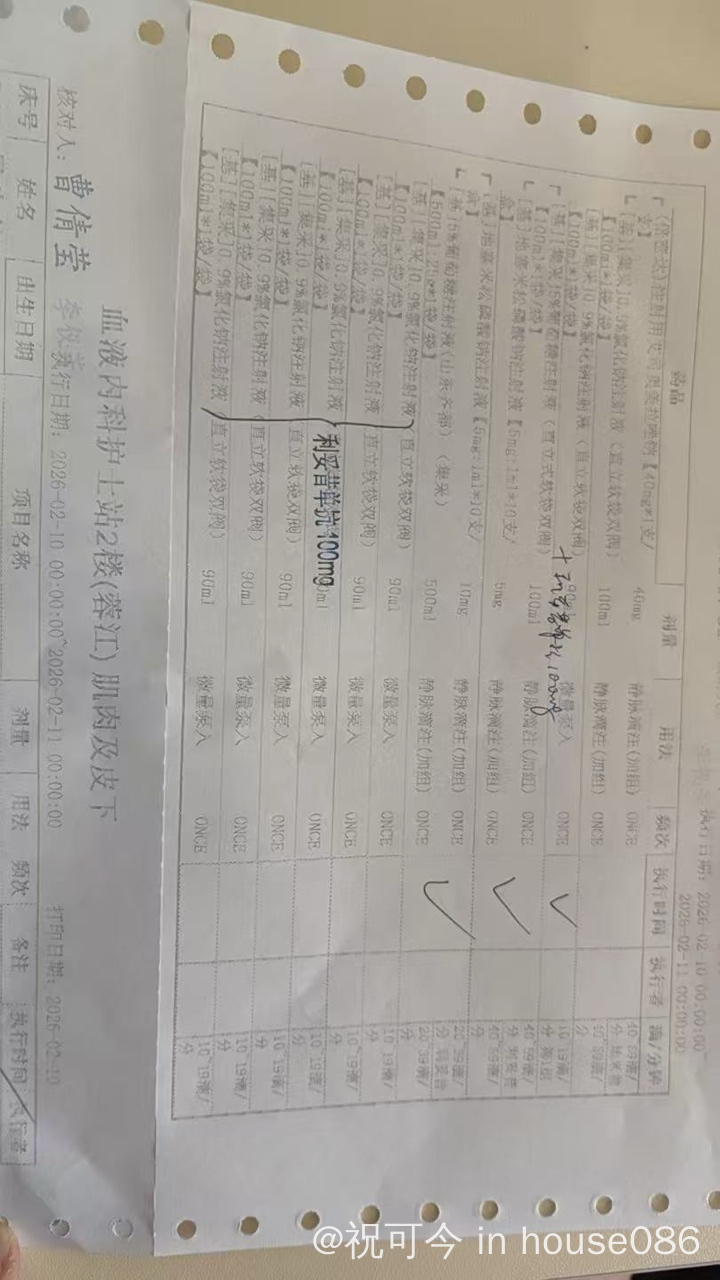 执行日期: 2026-02-10 00:00:00~
2026-02-11 00:00:00
药品 剂量 用法 频次 执行时间 执行者 滴/分钟
40mg 静脉滴注(加组) ONCE
【100ml*1袋/袋】
[基][集采]0.9%氯化钠注射液(直立软袋双阀) 100ml 静脉滴注(加组) ONCE
【100ml*1袋/袋】
微量泵入 ONCE 10~19滴/分
[基][集采]5%葡萄糖注射液(直立式软袋双阀) 100ml 静脉滴注(加组) ONCE
【100ml*1袋/袋】
[基]地塞米松磷酸钠注射液【5mg:1ml*10支/盒】 5mg 静脉滴注(加组) ONCE
[基]地塞米松磷酸钠注射液【5mg:1ml*10支/盒】 10mg 静脉滴注(加组) ONCE
[基]5%葡萄糖注射液(山东齐都)(集采) 500ml 静脉滴注(加组) ONCE
[基][集采]0.9%氯化钠注射液(直立软袋双阀) 90ml 微量泵入 ONCE 10~19滴/分
【100ml*1袋/袋】
[基][集采]0.9%氯化钠注射液(直立软袋双阀) 90ml 微量泵入 ONCE 10~19滴/分
【100ml*1袋/袋】
利妥昔单抗100mg
[基][集采]0.9%氯化钠注射液 微量泵入 ONCE 10~19滴/分
【100ml*1袋/袋】
[基][集采]0.9%氯化钠注射液(直立软袋双阀) 90ml 微量泵入 ONCE 10~19滴/分
【100ml*1袋/袋】
[基][集采]0.9%氯化钠注射液(直立软袋双阀) 90ml 微量泵入 ONCE 10~19滴/分
【100ml*1袋/袋】
[基][集采]0.9%氯化钠注射液(直立软袋双阀) 90ml 微量泵入 ONCE 10~19滴/分
【100ml*1袋/袋】
血液内科护士站2楼(蓉江)肌肉及皮下
核对人: 曹倩莹 执行日期: 2026-02-10 00:00:00~2026-02-11 00:00:00 打印日期: 2026-02-10
床号 姓名 出生日期 项目名称 剂量 用法 频次 备注 执行时间 执行者
@祝可今 in house086